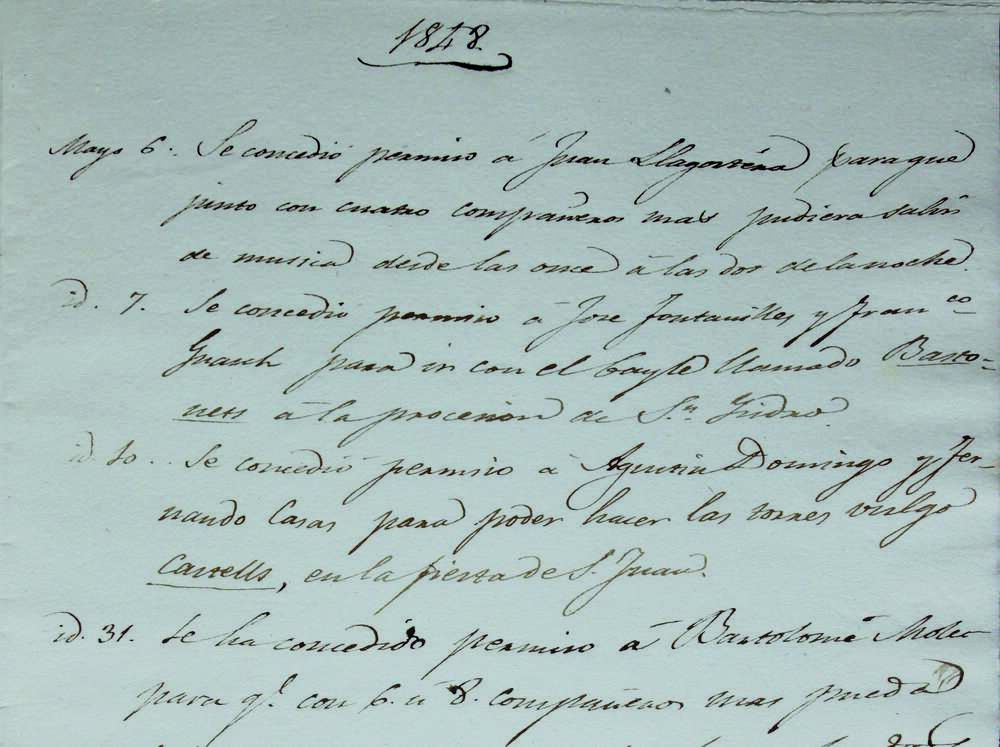 1848.
Mayo 6. Se concedió permiso á Juan Llagostera paraque
junto con cuatro compañeros mas pudiera salir
de musica desde las once á las dos de la noche.
id. 7. Se concedió permiso á Jose Fontanilles y Fran.co
Guasch para ir con el bayle llamado Basto-
nets á la procesion de S.n Isidro.
id. 10. Se concedió permiso á Agustin Domingo y Fer-
nando Casas para poder hacer las torres vulgo
Castells, en la fiesta de S. Juan.
id. 31. Se ha concedido permiso á Bartolomé
para q.e con 6. ú 8. compañeros mas pueda